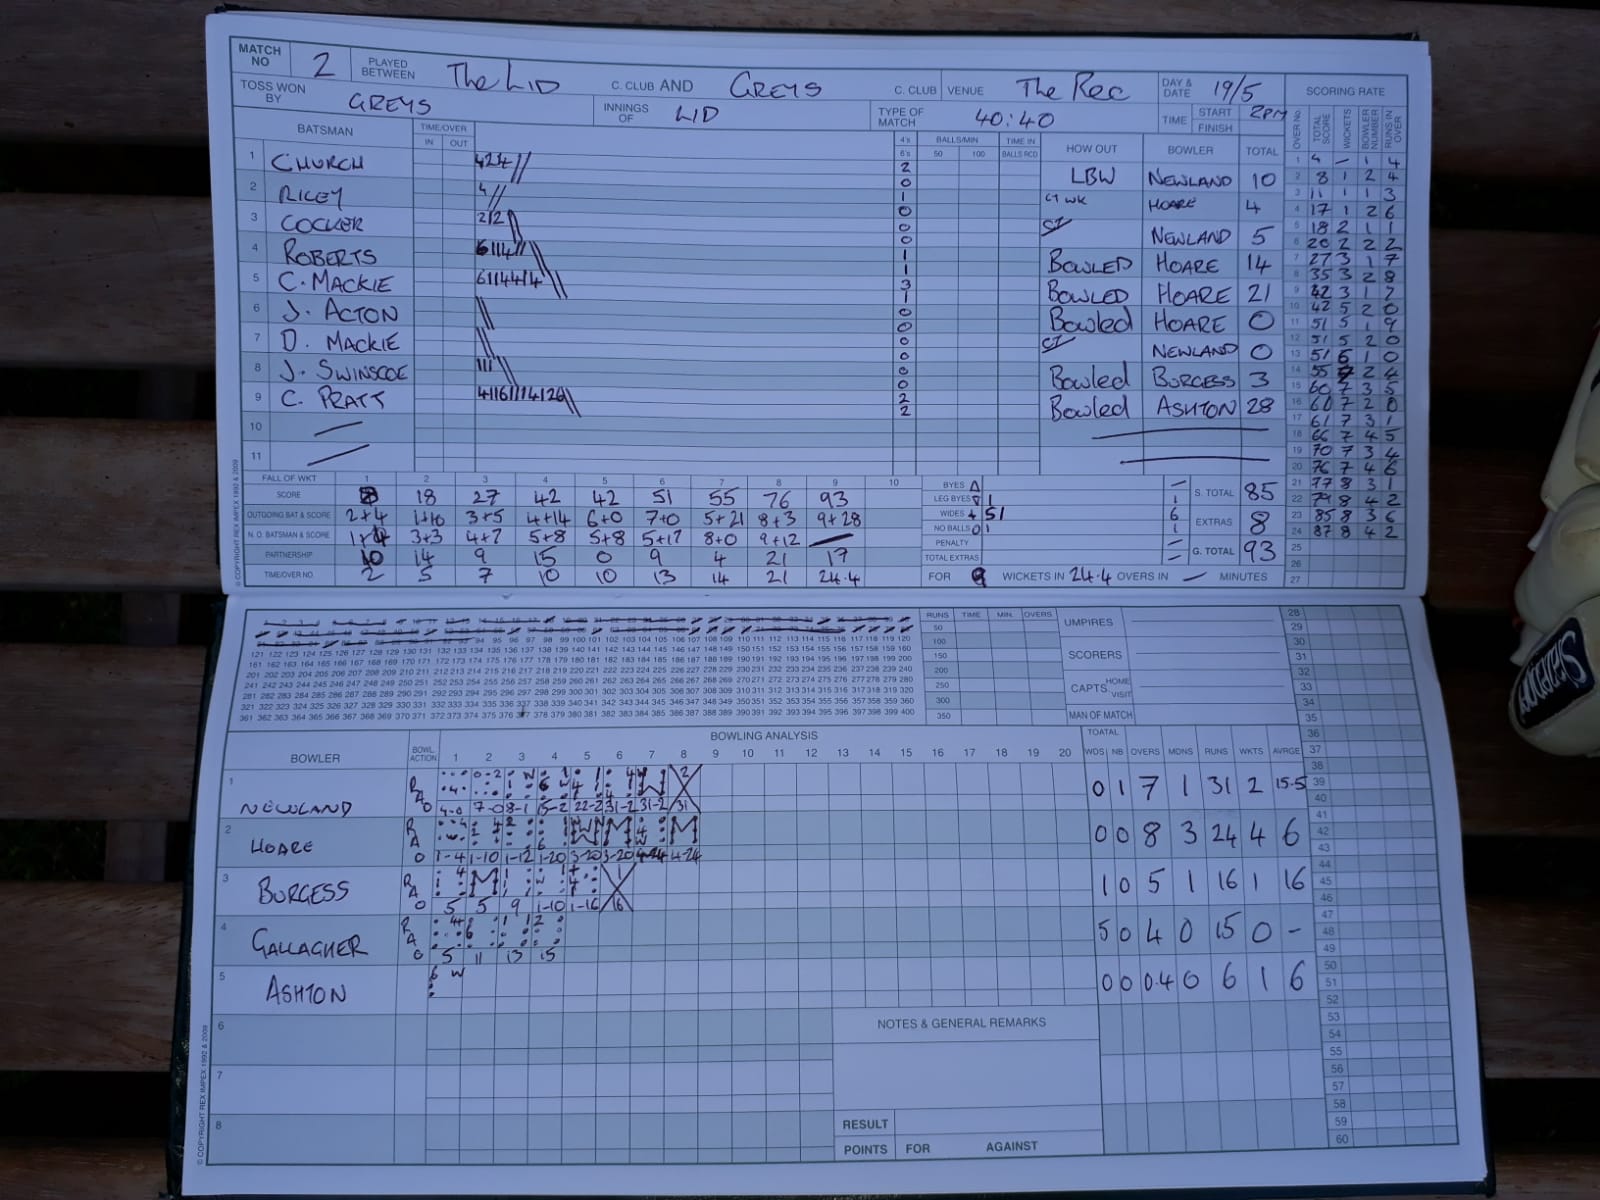 MATCH NO 2 PLAYED BETWEEN The LID C. CLUB AND GREYS C. CLUB VENUE The Rec DAY & DATE 19/5 SCORING RATE
TOSS WON BY GREYS INNINGS OF LID TYPE OF MATCH 40:40 TIME START 2PM FINISH
BATSMAN TIME/OVER IN OUT 4's 6's BALLS/MIN 50 100 TIME IN BALLS RCD HOW OUT BOWLER TOTAL OVER No. TOTAL SCORE WICKETS BOWLER NUMBER RUNS IN OVER
1 CHURCH 424 // 2 0 LBW NEWLAND 10
2 RILEY 4 // 1 0 CT WK HOARE 4
3 COCKER 212 \\ 0 0 CT NEWLAND 5
4 ROBERTS 1 1 BOWLED HOARE 14
5 C. MACKIE 3 1 BOWLED HOARE 21
6 J. ACTON \\ 0 0 Bowled HOARE 0
7 D. MACKIE \\ 0 0 CT NEWLAND 0
8 J. SWINSCOE 111 \\ 0 0 Bowled BURGESS 3
9 C. PRATT 2 2 Bowled ASHTON 28
10
11
1 4 – 1 4
2 8 1 2 4
3 11 1 1 3
4 17 1 2 6
5 18 2 1 1
6 20 2 2 2
7 27 3 1 7
8 35 3 2 8
9 42 3 1 7
10 42 5 2 0
11 51 5 1 9
12 51 5 2 0
13 51 6 1 0
14 55 7 2 4
15 60 7 3 5
16 60 7 2 0
17 61 7 3 1
18 66 7 4 5
19 70 7 3 4
20 76 7 4 6
21 77 8 3 1
22 79 8 4 2
23 85 8 3 6
24 87 8 4 2
25
26
27
FALL OF WKT 1 2 3 4 5 6 7 8 9 10
SCORE 8 18 27 42 42 51 55 76 93
OUTGOING BAT & SCORE 2+4 1+10 3+5 4+14 6+0 7+0 5+21 8+3 9+28
N. O. BATSMAN & SCORE 3+3 4+7 5+8 5+8 5+17 8+0 9+12 —
PARTNERSHIP 10 14 9 15 0 9 4 21 17
TIME/OVER NO. 2 5 7 10 10 13 14 21 24.4
BYES –
LEG BYES 1 1
WIDES + 51 6
NO BALLS O 1 1
PENALTY –
TOTAL EXTRAS
S. TOTAL 85
EXTRAS 8
G. TOTAL 93
FOR 9 WICKETS IN 24.4 OVERS IN – MINUTES
© COPYRIGHT REX IMPEX 1992 & 2009
121 122 123 124 125 126 127 128 129 130 131 132 133 134 135 136 137 138 139 140 141 142 143 144 145 146 147 148 149 150 151 152 153 154 155 156 157 158 159 160
161 162 163 164 165 166 167 168 169 170 171 172 173 174 175 176 177 178 179 180 181 182 183 184 185 186 187 188 189 190 191 192 193 194 195 196 197 198 199 200
201 202 203 204 205 206 207 208 209 210 211 212 213 214 215 216 217 218 219 220 221 222 223 224 225 226 227 228 229 230 231 232 233 234 235 236 237 238 239 240
241 242 243 244 245 246 247 248 249 250 251 252 253 254 255 256 257 258 259 260 261 262 263 264 265 266 267 268 269 270 271 272 273 274 275 276 277 278 279 280
281 282 283 284 285 286 287 288 289 290 291 292 293 294 295 296 297 298 299 300 301 302 303 304 305 306 307 308 309 310 311 312 313 314 315 316 317 318 319 320
321 322 323 324 325 326 327 328 329 330 331 332 333 334 335 336 337 338 339 340 341 342 343 344 345 346 347 348 349 350 351 352 353 354 355 356 357 358 359 360
361 362 363 364 365 366 367 368 369 370 371 372 373 374 375 376 377 378 379 380 381 382 383 384 385 386 387 388 389 390 391 392 393 394 395 396 397 398 399 400
RUNS TIME MIN. OVERS
50
100
150
200
250
300
350
UMPIRES
SCORERS
CAPTS HOME VISIT
MAN OF MATCH
BOWLING ANALYSIS
BOWLER BOWL. ACTION 1 2 3 4 5 6 7 8 9 10 11 12 13 14 15 16 17 18 19 20 TOATAL WDS NB OVERS MDNS RUNS WKTS AVRGE
1 NEWLAND 4-0 7-0 8-1 15-2 22-2 31-2 31-2 31 0 1 7 1 31 2 15.5
2 HOARE 1-4 1-10 1-12 1-20 3-20 3-20 4-24 4-24 0 0 8 3 24 4 6
3 BURGESS 5 5 9 1-10 1-16 16 1 0 5 1 16 1 16
4 GALLAGHER 5 11 13 15 5 0 4 0 15 0 –
5 ASHTON 6 W 0 0 0.4 0 6 1 6
6
7
8
NOTES & GENERAL REMARKS
RESULT
POINTS FOR AGAINST
28
29
30
31
32
33
34
35
36
37
38
39
40
41
42
43
44
45
46
47
48
49
50
51
52
53
54
55
56
57
58
59
60
© COPYRIGHT REX IMPEX 1992 & 2009
Slazenger